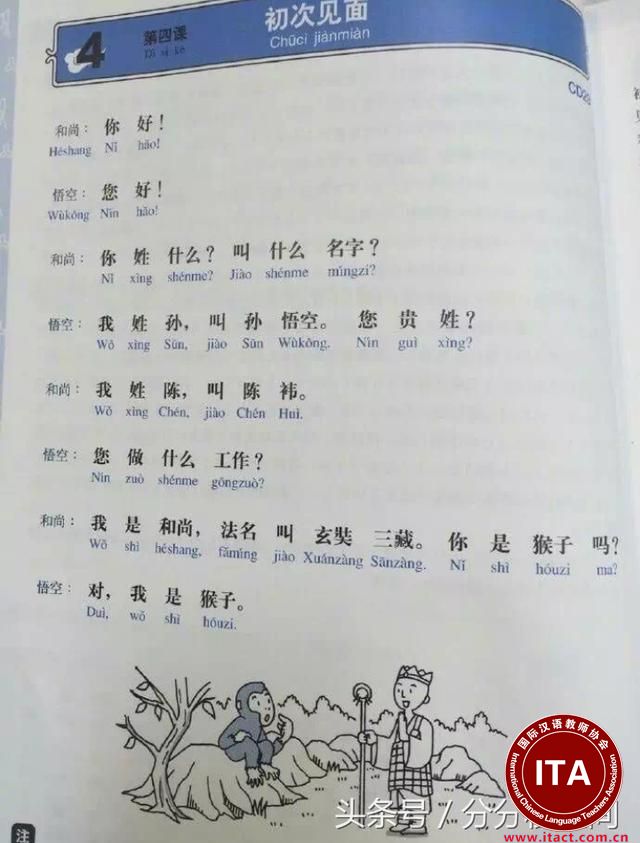 4 第四课 初次见面
Dì sì kè Chūcì jiànmiàn
CD29
和尚： 你 好！
Héshang Nǐ hǎo!
悟空： 您 好！
Wùkōng Nín hǎo!
和尚： 你 姓 什么？ 叫 什么 名字？
Nǐ xìng shénme? Jiào shénme míngzi?
悟空： 我 姓 孙， 叫 孙 悟空。 您 贵 姓？
Wǒ xìng Sūn, jiào Sūn Wùkōng. Nín guì xìng?
和尚： 我 姓 陈， 叫 陈 袆。
Wǒ xìng Chén, jiào Chén Huī.
悟空： 您 做 什么 工作？
Nín zuò shénme gōngzuò?
和尚： 我 是 和尚， 法名 叫 玄奘 三藏。 你 是 猴子 吗？
Wǒ shì héshang, fǎmíng jiào Xuánzàng Sānzàng. Nǐ shì hóuzi ma?
悟空： 对， 我 是 猴子。
Duì, wǒ shì hóuzi.
注
头条号 / 分分
国际汉语教师协会
ITA
International Chinese Language Teachers Association
www.itact.com.cn